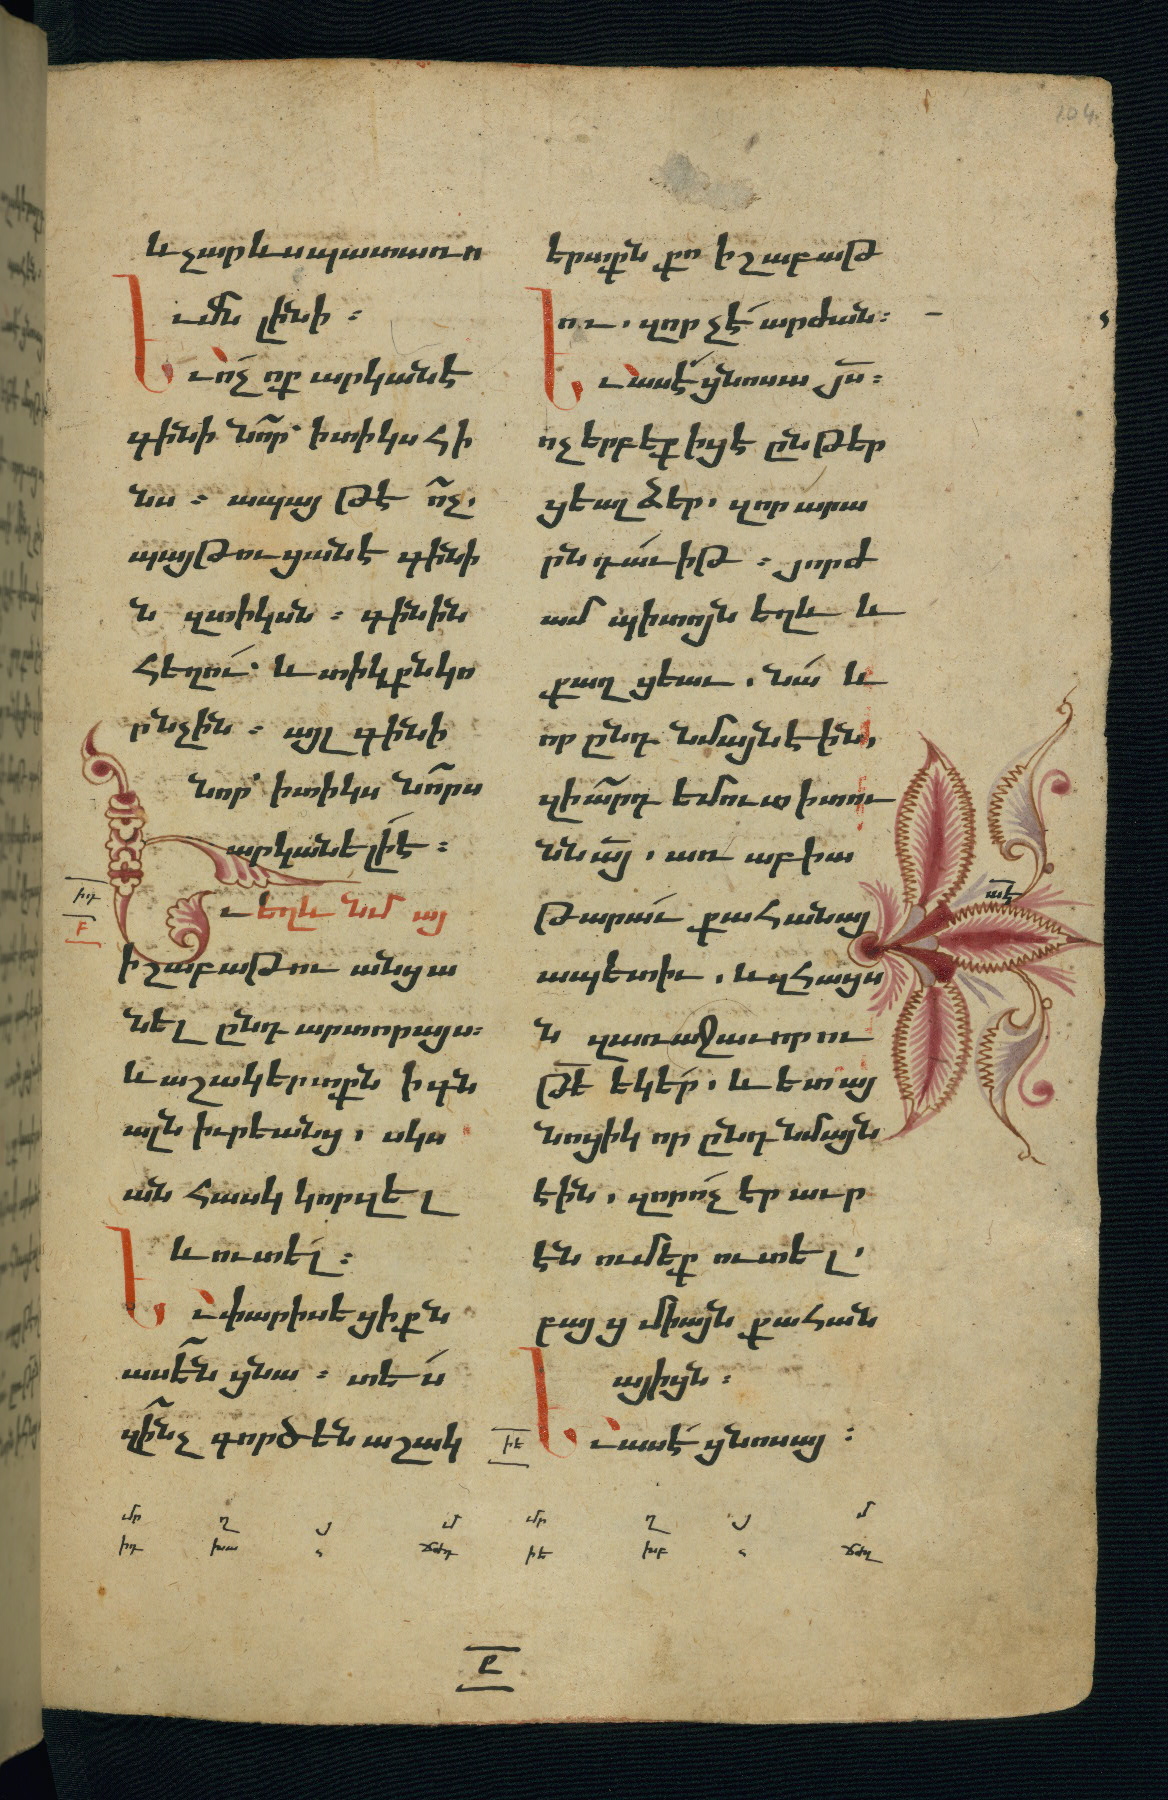 և չար ևս պատառո
ւմն լինի ։
Եւ ո՛չ ոք արկանէ
գինի նո̃ր՝ ի տիկս հի
նս ։ ապայ թէ ո̃չ.
պայթուցանէ գինի
ն զտիկսն ։ գինին
հեղու՛՝ և տիկքն կո
րնչին ։ այլ գինի
նոր՝ ի տիկս նո̃րս
արկանելի՛ է ։
Եւ եղև նմ այ
ի շաբաթու անցա
նել ընդ արտորայս։
և աշակերտքն ի գն
ալն իւրեանց, սկս
ան հասկ կորզել
և ուտե՛լ ։
Եւ փարիսեցիքն
ասե̃ն ցնա ։ տե՛ս
զի̃նչ գործեն աշակ
երտքն քո ի շաբաթ
ու. զոր չէ՛ արժան։
Եւ ասէ՛ ցնոսա յ̅ս ։
ոչ երբեք իցէ ընթեր
ցեալ ձեր. զոր արա
ր Դաւիթ ։ յորժ
ամ պիտոյն եղև և
քաղցեաւ. նա՛ և
որ ընդ նմայն էին,
զիա̃րդ եմուտ ի տու
նն ա̅յ. առ աբիա
թարաւ քահանայ
ապետիւ. և զհացս
ն զառաջաւորու
թե̅ եկե՛ր. և ետ այ
նոցիկ որ ընդ նմայն
էին. զոր ո՛չ էր աւր
էն ումեք ուտել.
բայց միայն քահան
այիցն ։
Եւ ասէ՛ ցնոսայ ։
Բ